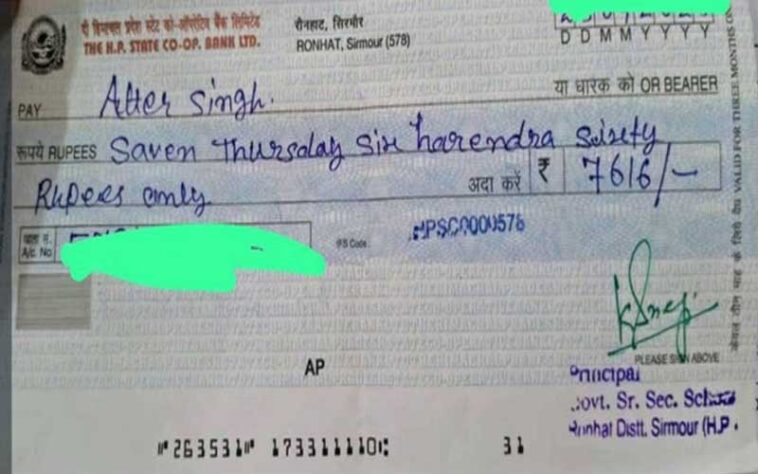 दी हिमाचल प्रदेश स्टेट को-ऑपरेटिव बैंक लिमिटेड
THE H.P. STATE CO-OP. BANK LTD.
रोनहाट, सिरमौर
RONHAT, Sirmour (578)
D D M M Y Y Y Y
PAY Atter Singh.
या धारक को OR BEARER
रूपये RUPEES Saven Thursday Six harendra Sixty
Rupees only
अदा करें ₹ 7616/-
खाता सं.
A/c. No.
IFS Code
HPSC0000578
VALID FOR THREE MONTHS
AP
PLEASE SIGN ABOVE
Principal
Govt. Sr. Sec. School
Ronhat Distt. Sirmour (H.P.
⑈263531⑈ 173311110⑆ 31